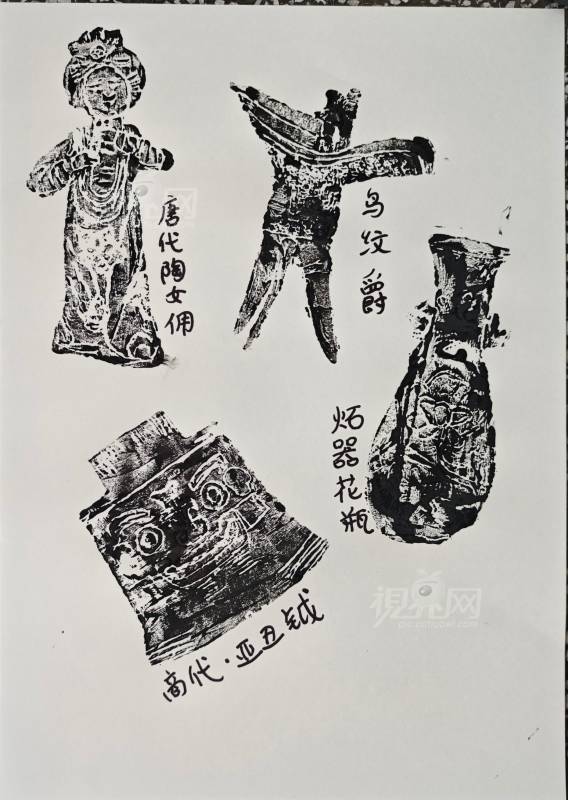 唐代陶女佣
鸟纹爵
炻器花瓶
商代·亚丑钺
視界网